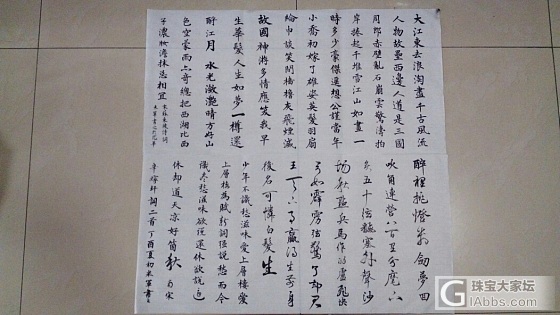 大江東去浪淘盡千古風流
人物故壘西邊人道是三國
周郎赤壁亂石崩雲驚濤拍
岸捲起千堆雪江山如畫一
時多少豪傑遙想公謹當年
小喬初嫁了雄姿英發羽扇
綸巾談笑間檣櫓灰飛煙滅
故國神游多情應笑我早
生華髮人生如夢一樽還
酹江月 水光瀲灩晴方好山
色空蒙雨亦奇總把西湖比西
子濃妝淡抹總相宜
醉裡挑燈看劍夢回
吹角連營八百里分麾下
炙五十弦翻塞外聲沙
場秋點兵馬作的盧飛快
弓如霹靂弦驚了却君
王天下事贏得生前身
後名可憐白髮生
少年不識愁滋味愛上層樓愛
上層樓為賦新詞強說愁而今
識盡愁滋味欲說還休欲說還
休却道天涼好箇秋 南宋
辛稼軒詞二首丁酉夏初
珠宝大家坛
LiAbbs.com